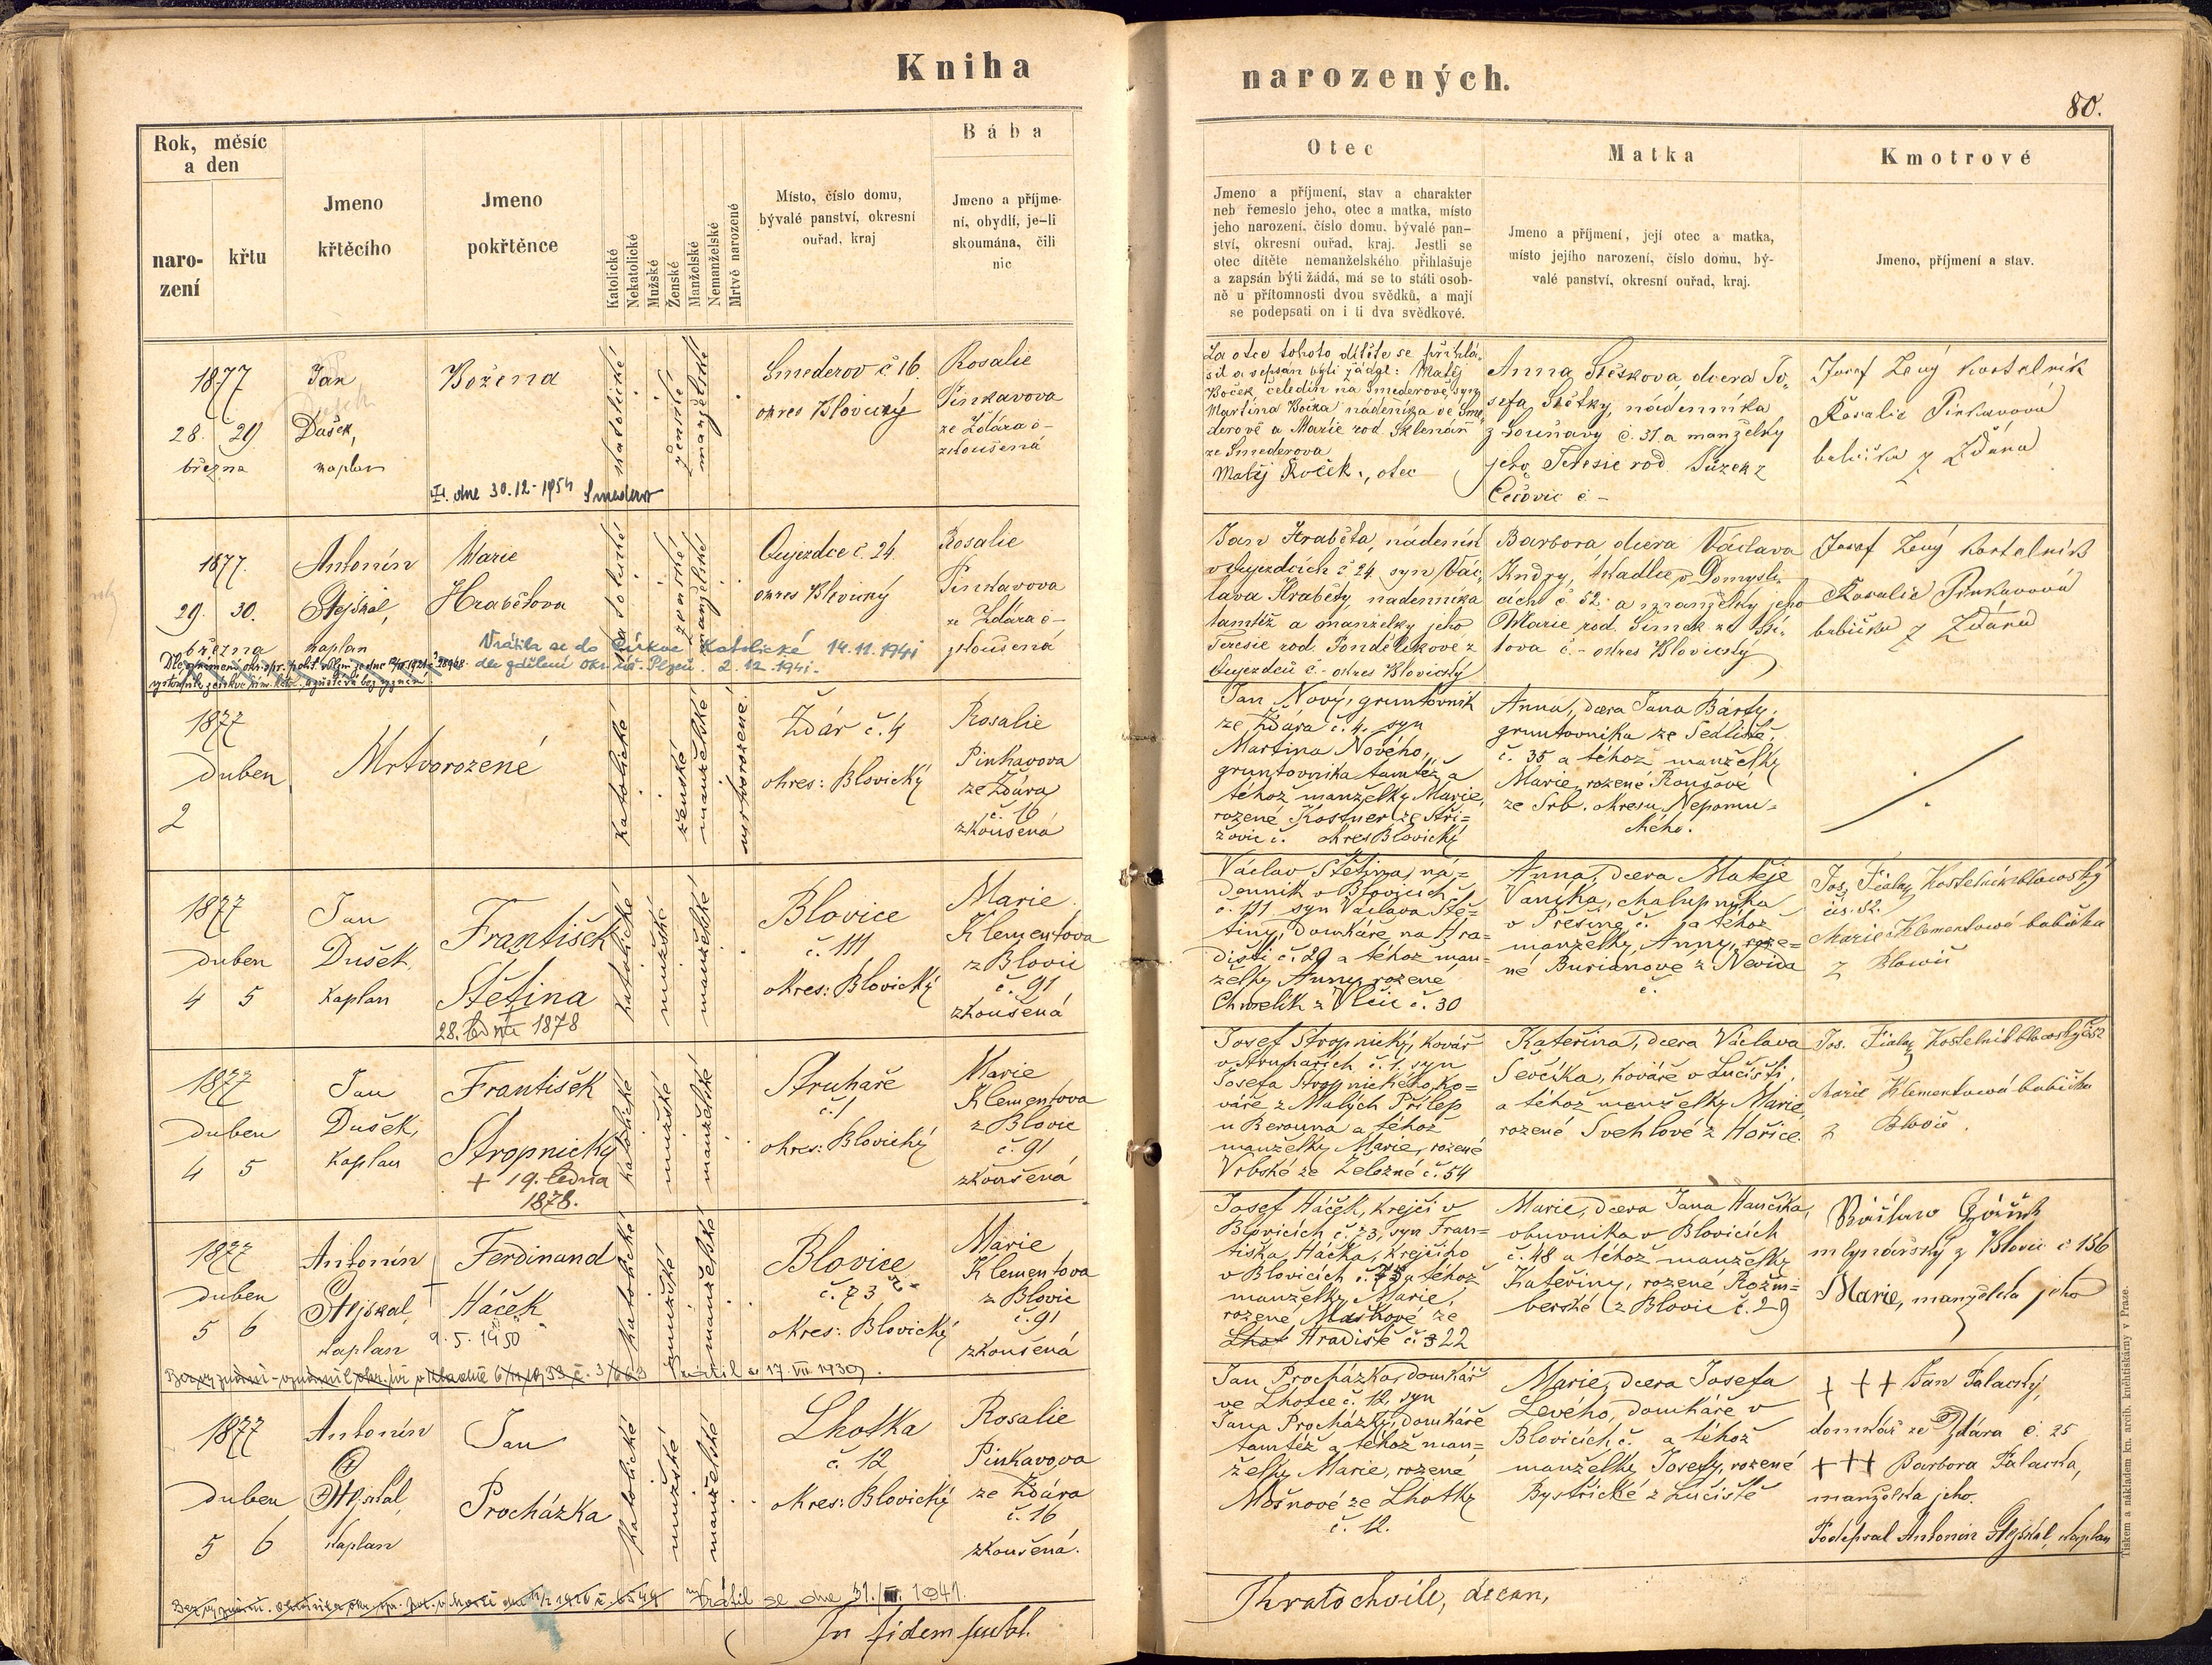 Kniha
narozených.
80.
Rok, měsíc
a den
naro-
zení
křtu
Jmeno
křtěcího
Jmeno
pokřtěnce
Katolické
Nekatolické
Mužské
Ženské
Manželské
Nemanželské
Mrtvě narozené
Místo, číslo domu,
bývalé panství, okresní
ouřad, kraj
Bába
Jmeno a příjme-
ní, obydlí, je-li
skoumána, čili
nic
Otec
Jmeno a příjmení, stav a charakter
neb řemeslo jeho, otec a matka, místo
jeho narození, číslo domu, bývalé pan-
ství, okresní ouřad, kraj. Jestli se
otec dítěte nemanželského přihlašuje
a zapsán býti žádá, má se to státi osob-
ně u přítomnosti dvou svědků, a mají
se podepsati on i ti dva svědkové.
Matka
Jmeno a příjmení, její otec a matka,
místo jejího narození, číslo domu, bý-
valé panství, okresní ouřad, kraj.
Kmotrové
Jmeno, příjmení a stav.
1877
28. 29.
března
Jan
Dušek,
kaplan
Božena
dne 30.12-1954 Smederov
katolické
ženské
manželské
Smederov č 16.
okres Blovický
Rosalie
Pinkavova
ze Ždára č-
zkoušená
Za otce tohoto dítěte se přihlá-
sil a vepsán býti žádal: Matěj
Boček, čeledín na Smederově, syn
Martina Bočka nádeníka ve Sme-
derově a Marie rod. Sklenář
ze Smederova
Matěj Boček, otec
Anna Štětkova dcera Jo-
sefa Štětky, nádenníka
z Louňavy č. 31 a manželky
jeho Teresie rod. Bůzek z
Čečovic č -
Josef Lený kostelník
Rosalie Pinkavová
babička z Ždára
1877.
29. 30.
března
Antonín
Stejskal,
kaplan
Marie
Hrabětova
Vrátila se do Církve Katolické 14.11.1941
dle sdělení okr. úř. Plzeň. 2.12.1941.
katolické
ženské
manželské
Oujezdce č. 24.
okres Blovický
Rosalie
Pinkavova
ze Ždára č-
zkoušená
Jan Hraběta, nádeník
v Oujezdcích č 24. syn Vác-
lava Hraběty, nadenníka
tamtéž a manželky jeho
Teresie rod. Pondělíkové z
Oujezdců č- okres Blovický
Barbora dcera Václava
Kudry, tkadlce v Domysli-
cích č 52. a manželky jeho
Marie rod. Šimek ze
č- okres Blovický
Josef Lený kostelník
Rosalie Pinkavová
babička z Ždára
1877
duben
2
Mrtvorozené
katolické
ženské
manželské
mrtvorozené.
Ždár č. 4
okres: Blovický
Rosalie
Pinkavova
ze Ždára
č. 16
zkoušená
Jan Nový, gruntovník
ze Ždára č. 4. syn
Martina Nového,
gruntovníka tamtéž a
téhož manželky Marie,
rozené Kostner ze Stři-
žovic č. okres Blovický
Anna, dcera Jana Bárty,
gruntovníka ze Sedliště,
č. 35 a téhož manželky
Marie, rozené Roušové
ze Srb. okresu Nepomu-
ckého.
1877
duben
4 5
Jan
Dušek,
kaplan
František
Štětina
28. ledna 1878
katolické
mužské
manželské
Blovice
č. 111
okres: Blovický
Marie
Klementova
z Blovic
č. 91
zkoušená
Václav Štětina, ná-
denník v Blovicích
č. 111 syn Václava Ště-
tiny, domkáře na Hra-
dišti č. 29 a téhož man-
želky Anny, rozené
Chmelík z Vlčic č. 30
Anna, dcera Matěje
Vaníka, chalupníka
v Přešíně č. a téhož
manželky, Anny, roze-
né Burianové z Nevida
č.
Jos. Fiala, Kostelník blovický
čís. 82.
Marie Klementová babička
z Blovic
1877
duben
4 5
Jan
Dušek,
kaplan
František
Stropnický
+ 19. ledna
1878.
katolické
mužské
manželské
Struhaře
č. 1
okres: Blovický
Marie
Klementova
z Blovic
č. 91
zkoušená
Josef Stropnický, kovář
v Struhařích č. 1, syn
Josefa Stropnického, ko-
váře z Malých Přílep
u Berouna a téhož
manželky Marie, rozené
Vrbské ze Železné č. 54
Kateřina, dcera Václava
Ševčíka, kováře v Lučišti,
a téhož manželky Marie,
rozené Švehlové z Hořice.
Jos. Fiala, Kostelník blovický
Marie Klementová babička
z Blovic.
1877
duben
5 6
Antonín
Stejskal,
kaplan
Ferdinand
Háček
+ 9.5.1950
Vrátil se 17.VII.1939.
katolické
mužské
manželské
Blovice
č. 73
okres: Blovický
Marie
Klementova
z Blovic
č. 91
zkoušená
Josef Háček, krejčí v
Blovicích č. 73, syn Fran-
tiska Háčka, krejčího
v Blovicích č. 73 a téhož
manželky Marie,
rozené Maškové ze
Lhot Hradiště č. 22
Marie, dcera Jana Hančíka,
obuvníka v Blovicích
č. 48 a téhož manželky
Kateřiny, rozené Rožm-
berské z Blovic č. 29
Václav
mlynářský z Blovic č 136
Marie, manželka jeho
1877
duben
5 6
Antonín
Stejskal,
kaplan
Jan
Procházka
Vrátil se dne 31./III. 1941.
katolické
mužské
manželské
Lhotka
č. 12
okres: Blovický
Rosalie
Pinkavova
ze Ždára
č. 16
zkoušená.
Jan Procházka, domkář
ve Lhotce č. 12, syn
Jana Procházky, domkáře
tamtéž a téhož man-
želky Marie, rozené
Mošnové ze Lhotky
č. 12.
Marie, dcera Josefa
Levého, domkáře v
Blovicích č. a téhož
manželky Josefy, rozené
Bystřické z Lučiště
+++ Jan Palacký,
domkář ze Ždára č. 25
+++ Barbora Palacká,
manželka jeho.
Podepsal Antonín Stejskal, kaplan
In fidem publ.
Thratochvile, decan,
Tiskem a nákladem kn. arcib. kněhtiskárny v Praze.